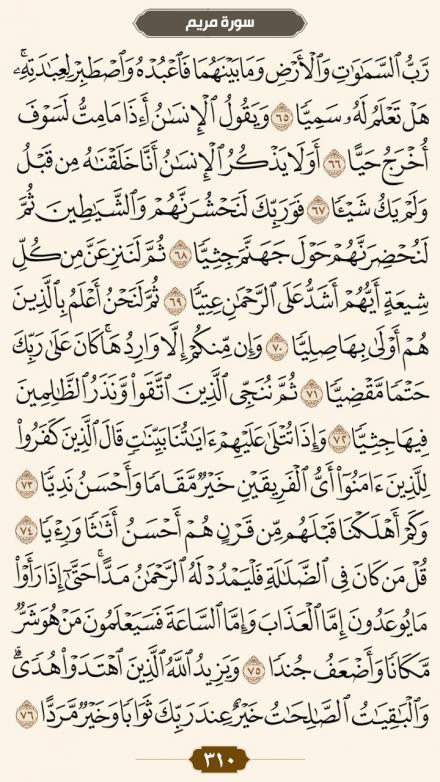 سورة مريم
رَّبُّ ٱلسَّمَٰوَٰتِ وَٱلۡأَرۡضِ وَمَا بَيۡنَهُمَا فَٱعۡبُدۡهُ وَٱصۡطَبِرۡ لِعِبَٰدَتِهِۦۚ
هَلۡ تَعۡلَمُ لَهُۥ سَمِيّٗا ٦٥ وَيَقُولُ ٱلۡإِنسَٰنُ أَءِذَا مَا مِتُّ لَسَوۡفَ
أُخۡرَجُ حَيًّا ٦٦ أَوَلَا يَذۡكُرُ ٱلۡإِنسَٰنُ أَنَّا خَلَقۡنَٰهُ مِن قَبۡلُ
وَلَمۡ يَكُ شَيۡـٔٗا ٦٧ فَوَرَبِّكَ لَنَحۡشُرَنَّهُمۡ وَٱلشَّيَٰطِينَ ثُمَّ
لَنُحۡضِرَنَّهُمۡ حَوۡلَ جَهَنَّمَ جِثِيّٗا ٦٨ ثُمَّ لَنَنزِعَنَّ مِن كُلِّ
شِيعَةٍ أَيُّهُمۡ أَشَدُّ عَلَى ٱلرَّحۡمَٰنِ عِتِيّٗا ٦٩ ثُمَّ لَنَحۡنُ أَعۡلَمُ بِٱلَّذِينَ
هُمۡ أَوۡلَىٰ بِهَا صِلِيّٗا ٧٠ وَإِن مِّنكُمۡ إِلَّا وَارِدُهَاۚ كَانَ عَلَىٰ رَبِّكَ
حَتۡمٗا مَّقۡضِيّٗا ٧١ ثُمَّ نُنَجِّي ٱلَّذِينَ ٱتَّقَواْ وَّنَذَرُ ٱلظَّٰلِمِينَ
فِيهَا جِثِيّٗا ٧٢ وَإِذَا تُتۡلَىٰ عَلَيۡهِمۡ ءَايَٰتُنَا بَيِّنَٰتٖ قَالَ ٱلَّذِينَ كَفَرُواْ
لِلَّذِينَ ءَامَنُوٓاْ أَيُّ ٱلۡفَرِيقَيۡنِ خَيۡرٞ مَّقَامٗا وَأَحۡسَنُ نَدِيّٗا ٧٣
وَكَمۡ أَهۡلَكۡنَا قَبۡلَهُم مِّن قَرۡنٍ هُمۡ أَحۡسَنُ أَثَٰثٗا وَرِءۡيٗا ٧٤
قُلۡ مَن كَانَ فِي ٱلضَّلَٰلَةِ فَلۡيَمۡدُدۡ لَهُ ٱلرَّحۡمَٰنُ مَدًّاۚ حَتَّىٰٓ إِذَا رَأَوۡاْ
مَا يُوعَدُونَ إِمَّا ٱلۡعَذَابَ وَإِمَّا ٱلسَّاعَةَ فَسَيَعۡلَمُونَ مَنۡ هُوَ شَرّٞ
مَّكَانٗا وَأَضۡعَفُ جُندٗا ٧٥ وَيَزِيدُ ٱللَّهُ ٱلَّذِينَ ٱهۡتَدَوۡاْ هُدٗىۗ
وَٱلۡبَٰقِيَٰتُ ٱلصَّٰلِحَٰتُ خَيۡرٌ عِندَ رَبِّكَ ثَوَابٗا وَخَيۡرٞ مَّرَدًّا ٧٦
٣١٠